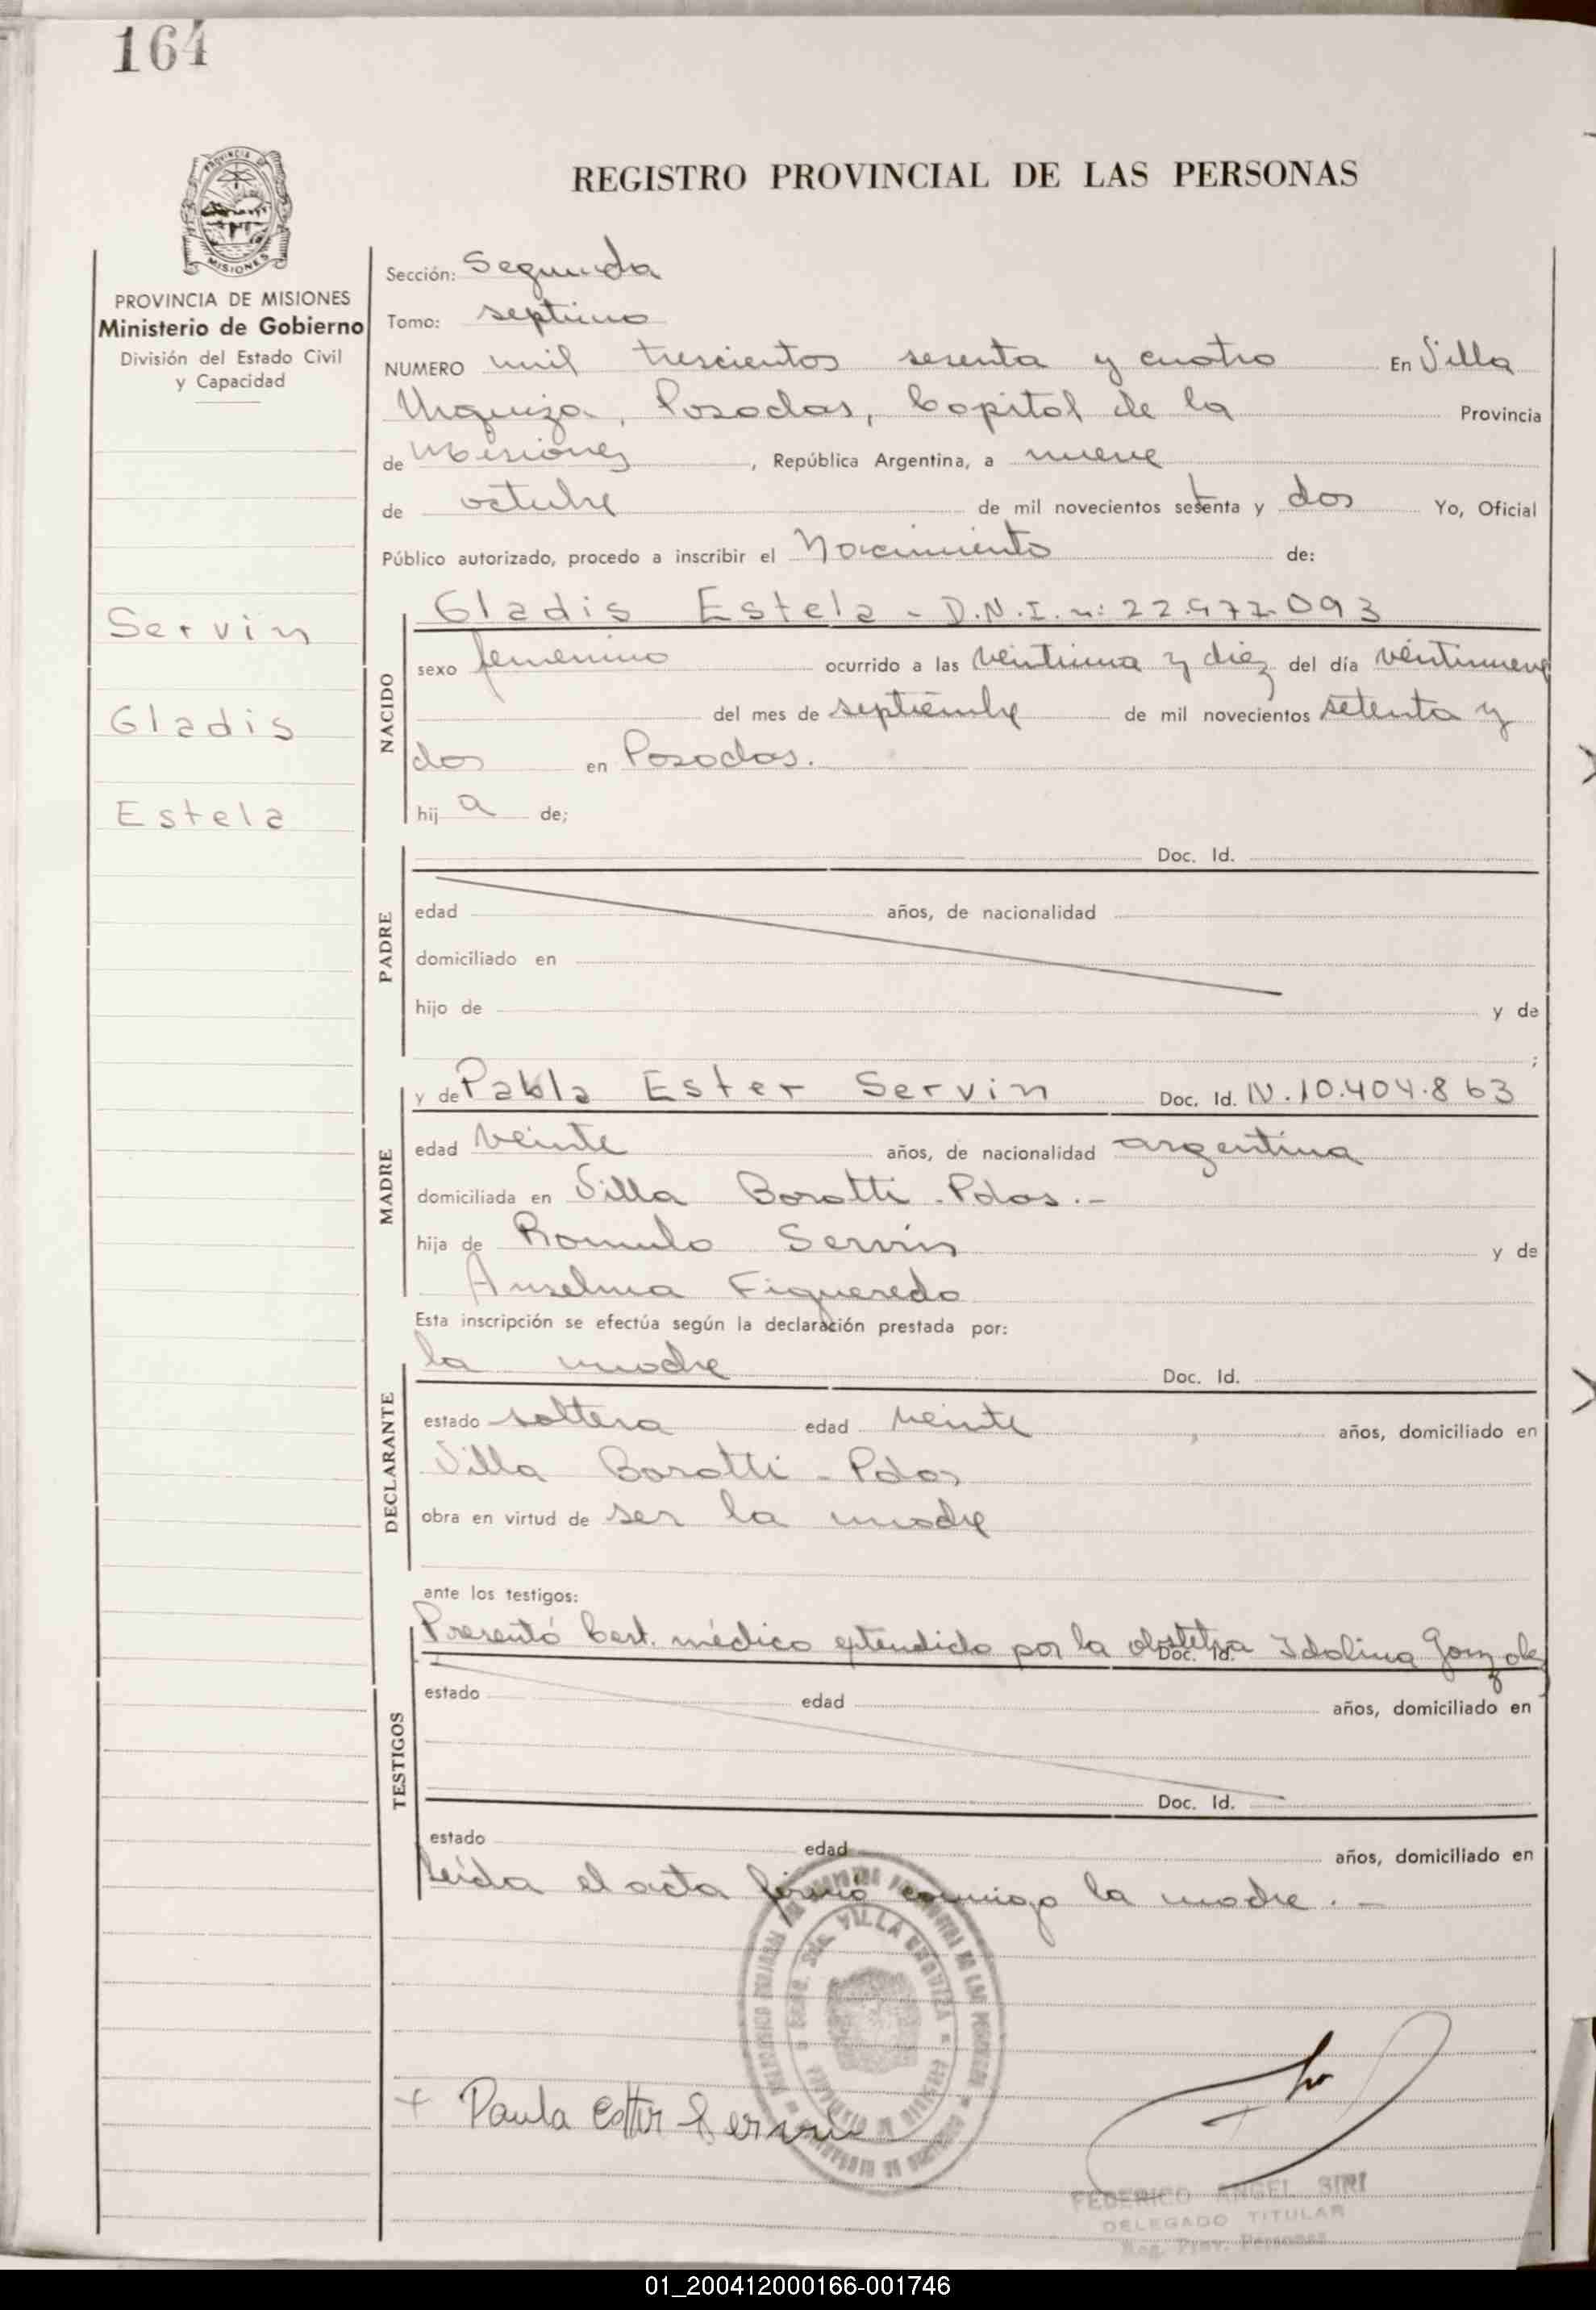 164
REGISTRO PROVINCIAL DE LAS PERSONAS
PROVINCIA DE MISIONES
MISIONES
PROVINCIA DE MISIONES
Ministerio de Gobierno
División del Estado Civil
y Capacidad
Servin
Gladis
Estela
Sección: Segunda
Tomo: septimo
NUMERO mil trescientos sesenta y cuatro En Villa
Urquiza, Posadas, Capital de la Provincia
de Misiones, República Argentina, a nueve
de octubre de mil novecientos setenta y dos Yo, Oficial
Público autorizado, procedo a inscribir el Nacimiento de:
NACIDO
Gladis Estela - D.N.I. n: 22.972.093
sexo femenino ocurrido a las veintiuna y diez del día veintinueve
del mes de septiembre de mil novecientos setenta y
dos en Posadas.
hij a de;
PADRE
Doc. Id.
edad años, de nacionalidad
domiciliado en
hijo de y de
;
MADRE
y de Pabla Ester Servin Doc. Id. N. 10.404.863
edad veinte años, de nacionalidad argentina
domiciliada en Villa Boratti - Pdas. -
hija de Romulo Servin y de
Anselma Figueredo
Esta inscripción se efectúa según la declaración prestada por:
DECLARANTE
la madre Doc. Id.
estado soltera edad veinte años, domiciliado en
Villa Boratti - Pdas
obra en virtud de ser la madre
ante los testigos:
TESTIGOS
Presentó Cert. médico extendido por la obstetra Idolina Gonzalez
Doc. Id.
estado edad años, domiciliado en
Doc. Id.
estado edad años, domiciliado en
Leída el acta firmó conmigo la madre. -
VILLA URQUIZA
+ Paula Ester Servin
FEDERICO ANGEL SIRI
DELEGADO TITULAR
Reg. Prov. Personas
01_200412000166-001746